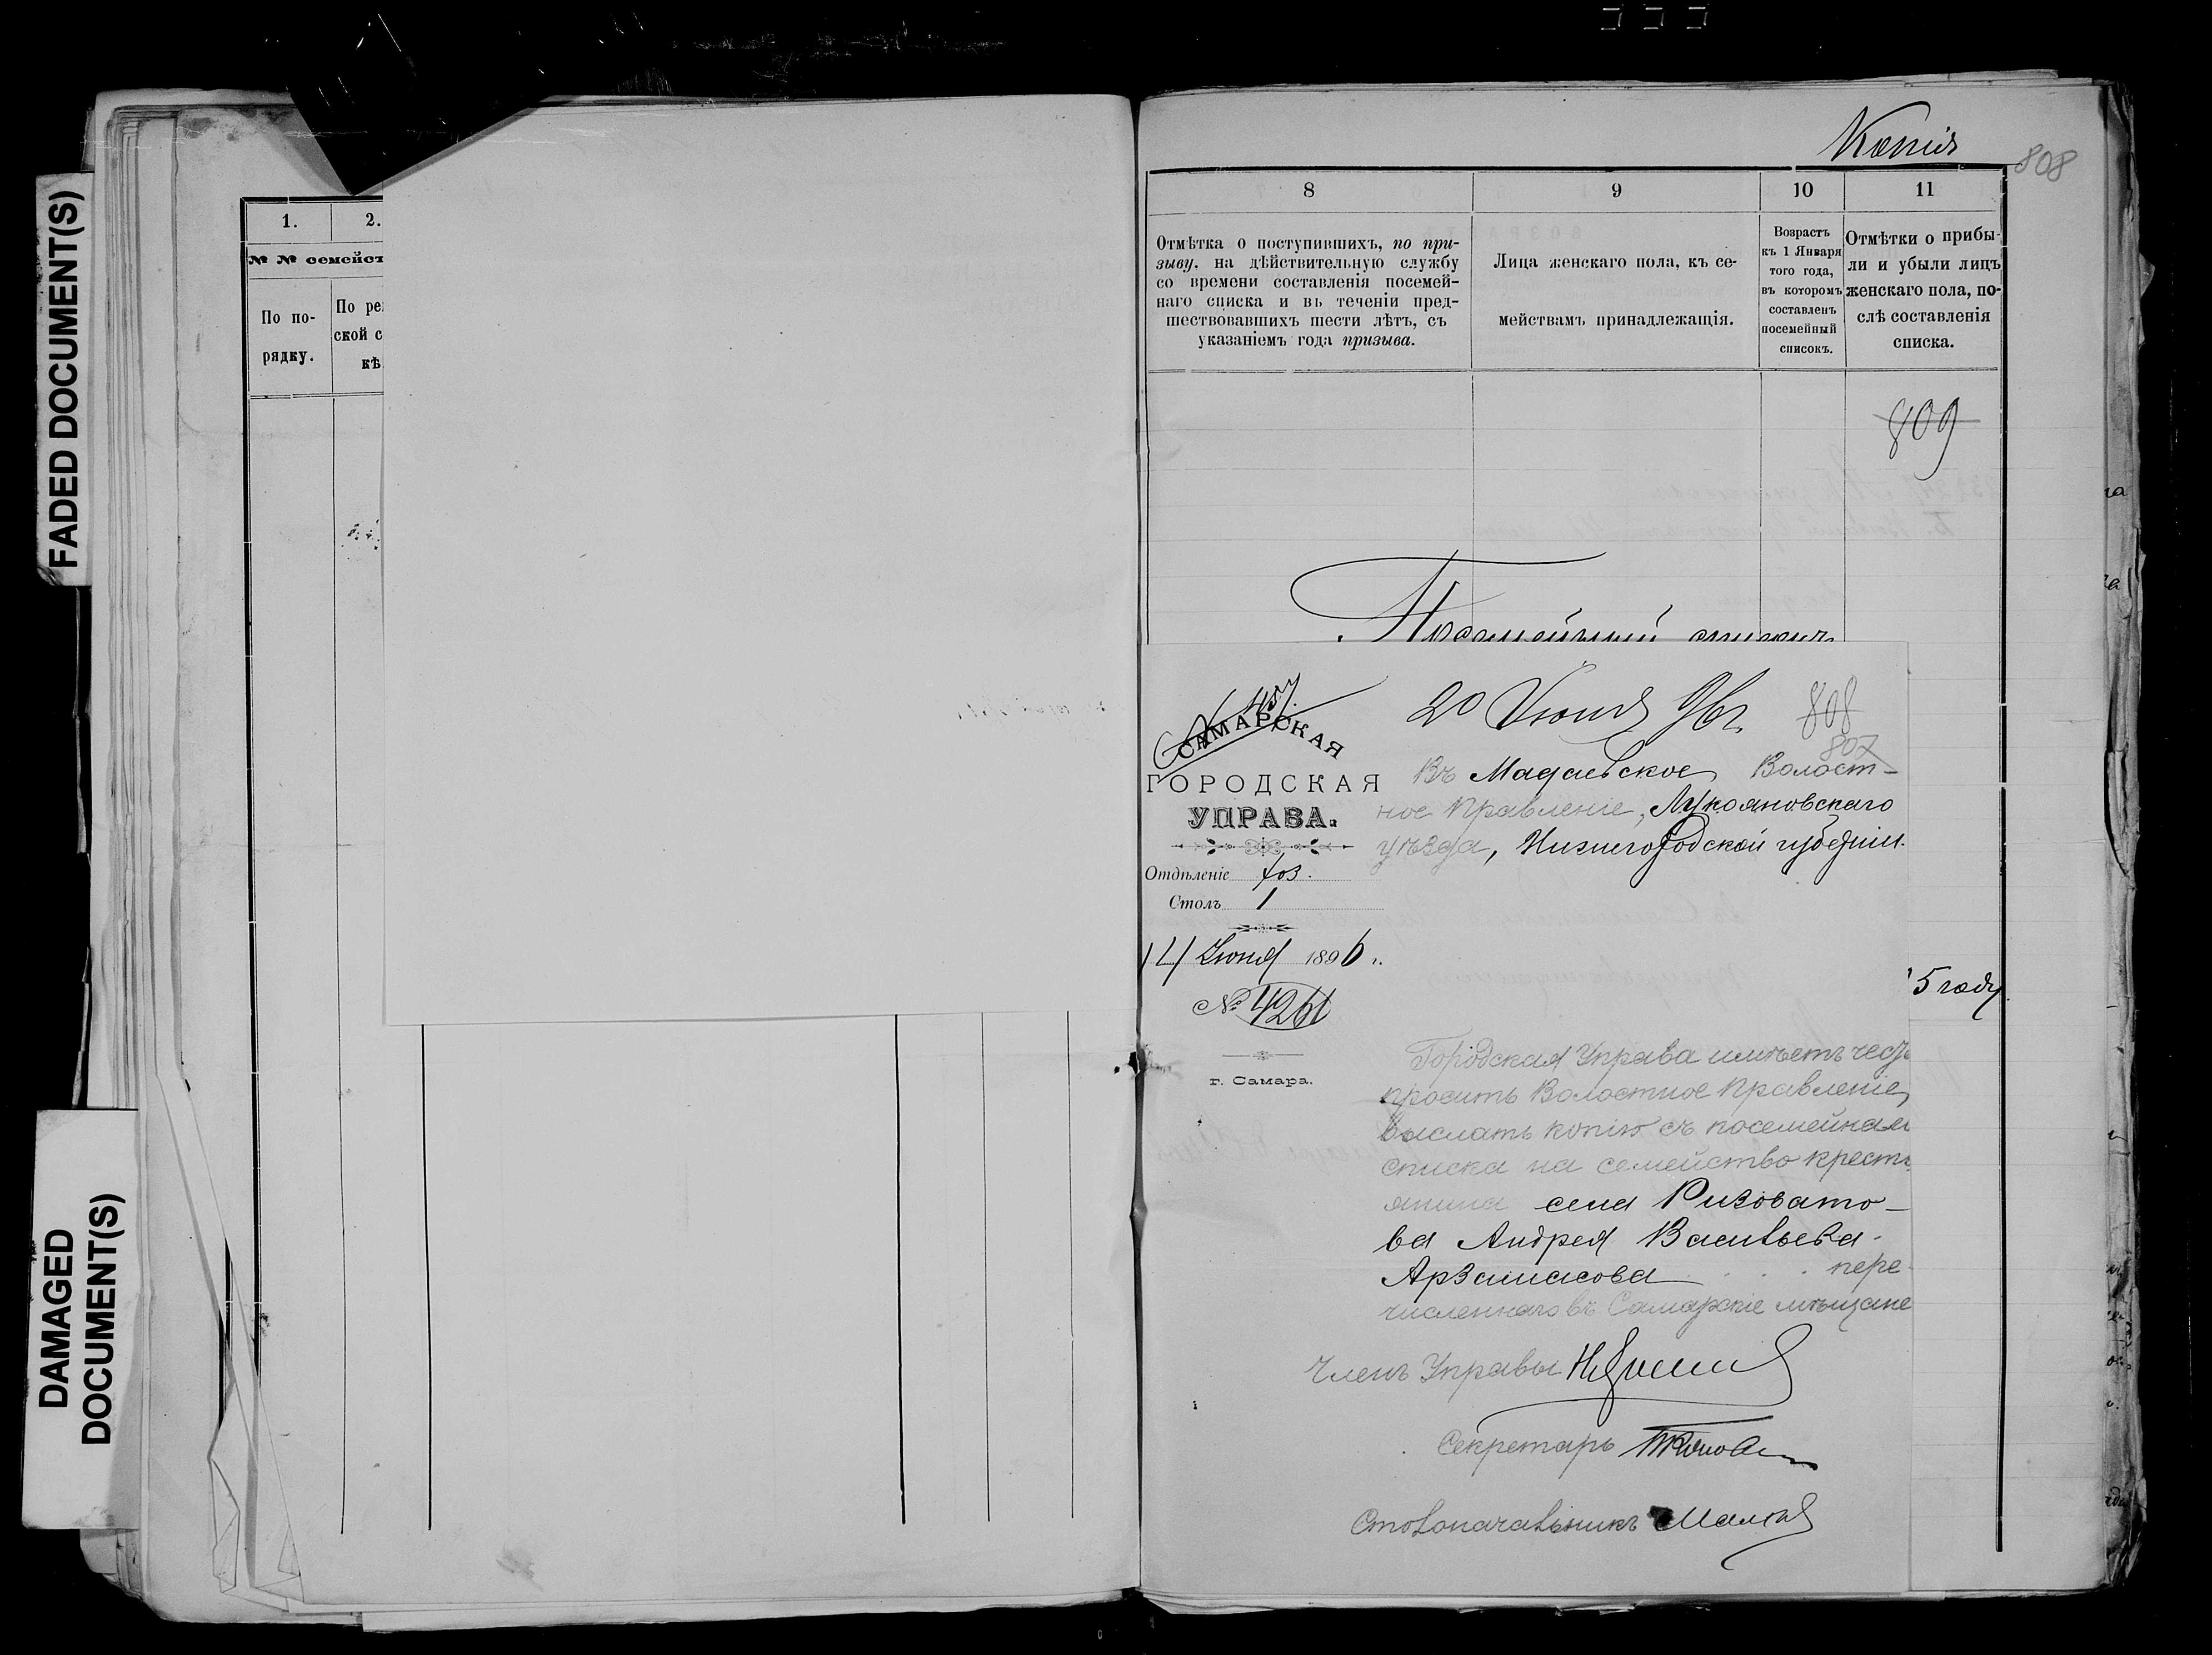 FADED DOCUMENT(S)
DAMAGED
DOCUMENT(S)
1.
2.
№ № семейст
По по-
рядку.
По ре
ской с
кѣ
Копія
808
8
9
10
11
Отмѣтка о поступившихъ, по при-
зыву, на дѣйствительную службу
со времени составленія посемей-
наго списка и въ теченіи пред-
шествовавшихъ шести лѣтъ, съ
указаніемъ года призыва.
Лица женскаго пола, къ се-
мействамъ принадлежащія.
Возрастъ
къ 1 Января
того года,
въ которомъ
составленъ
посемейный
списокъ.
Отмѣтки о прибы-
ли и убыли лицъ
женскаго пола, по-
слѣ составленія
списка.
809
Посемейный списокъ
457.
САМАРСКАЯ
ГОРОДСКАЯ
УПРАВА.
Отдѣленіе хоз.
Столъ 1
14 Іюня 1896 г.
№ 4261
г. Самара.
20 Іюня 96 г.
808
807
Въ Мадаевское Волост-
ное Правленіе, Лукояновскаго
уѣзда, Нижегородской губерніи.
5 году
Городская Управа имѣетъ честь
просить Волостное Правленіе
выслать копію съ посемейнаго
списка на семейство кресть
янина села Ризовато-
ва Андрея Васильева
Арзамасова пере
численнаго въ Самарскіе мѣщане
Членъ Управы
Секретарь
Столоначальникъ